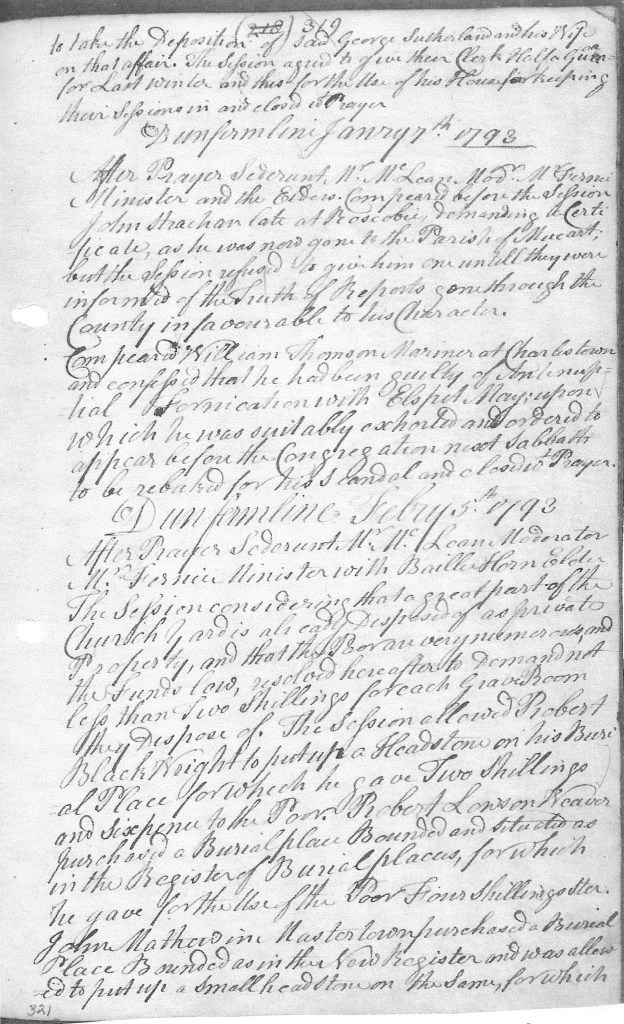 (218) 319
to take the Deposition of said George Sutherland and his Wife
on that affair. The Session agreed to give their Clerk Half a Guinea
for Last Winter and this for the Use of his House for keeping
their Sessions in and closed wt Prayer
Dunfirmline Janry 7th 1793
After Prayer Sederunt, Mr. McLean Modr. Mr Fernie
Minister and the Elders. Compeared before the Session
John Strachan late at Roscobie, demanding a Certi
ficate, as he was now gone to the Parish of Mucart;
but the Session refused to give him one untill they were
informed of the Truth of Reports gone through the
County infavourable to his Character.
Compeared William Thomson Mariner at Charlestown
and confessed that he had been guilty of Antenup=
=tial Fornication with Elspit May; upon
which he was suitably exhorted and ordered to
appear before the Congregation next Sabbath
to be rebuked for his Scandal and closed wt Prayer.
Dunfirmline Febry 5th 1793
After Prayer Sederunt Mr. Mc Lean Moderator
Mr. Fernie Minister with Baillie Horn Elder
The Session considering that a great part of the
Church Yard is already Disposed of as private
Property, and that the Poor are very numerous, and
the Funds low, resolved hereafter to Demand not
less than Two Shillings for each Grave Room
they Dispose of. The Session allowed Robert
Black Wright to put up a Headstone on his Buri
al Place for which he gave Two Shillings
and sixpence to the Poor. Robert Lowson Weaver
purchased a Burial place Bounded and situated as
in the Register of Burial places, for which
he gave for the Use of the Poor Four Shillings ster.
John Mathew in Mastertown purchased a Burial
Place Bounded as in the New Register and was allow
=ed to put up a small headstone on the Same, for which
321